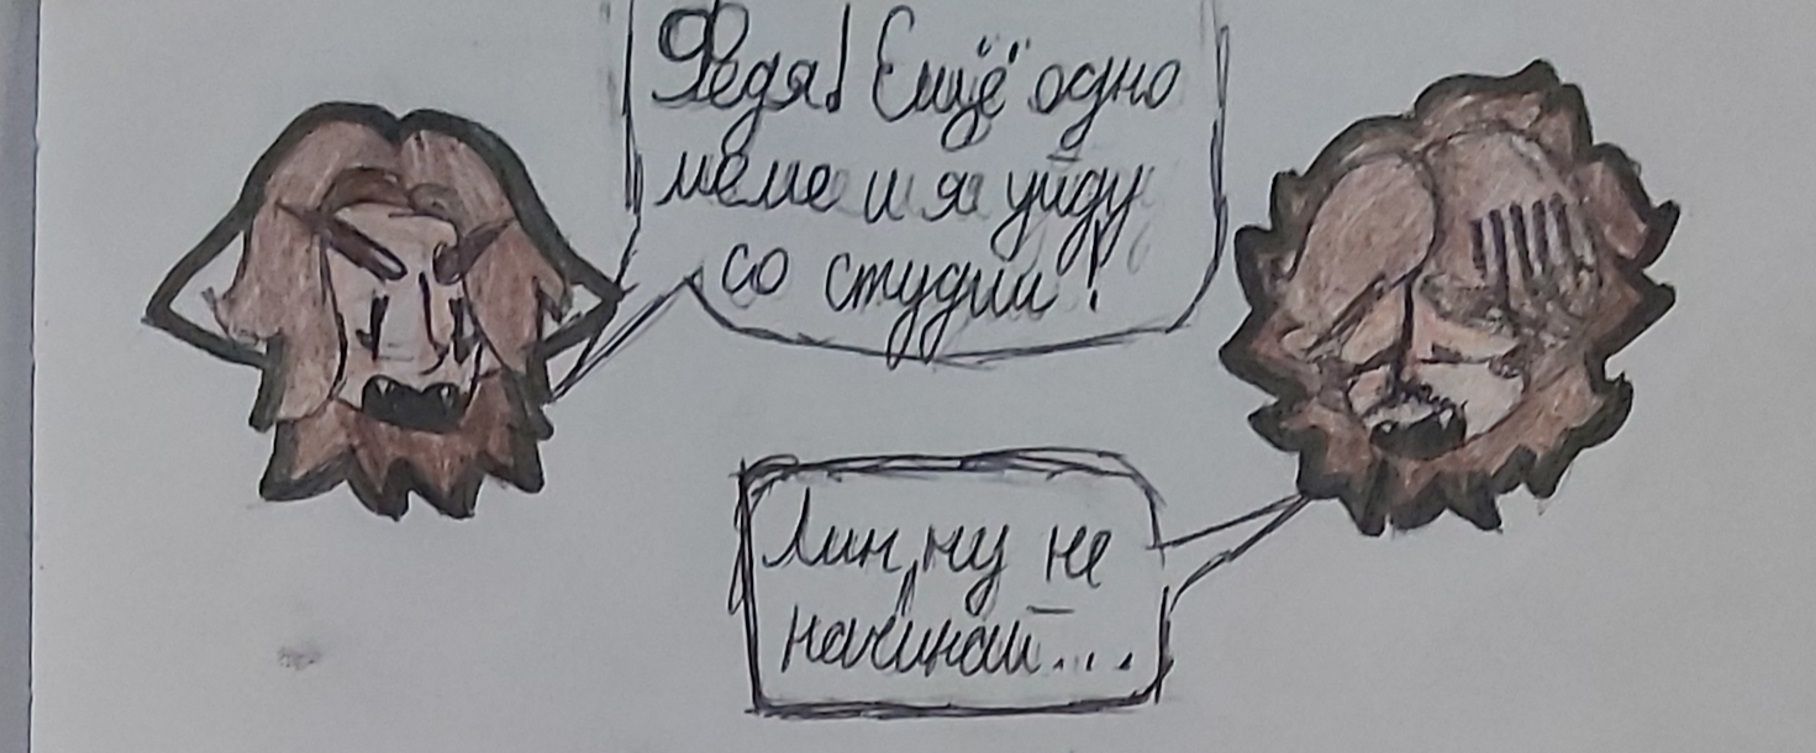 Федя! Ещё одно
меме и я уйду
со студии!
Лин, ну не
начинай....